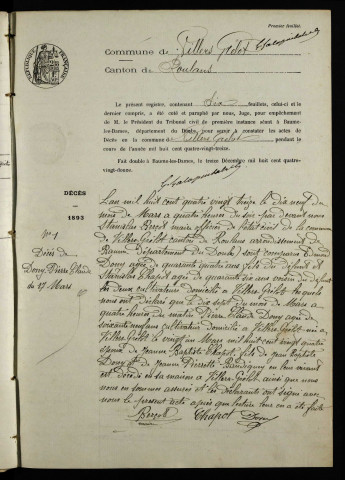 Premier feuillet.
Commune de Villers Grélot
Canton de Roulans
Le présent registre, contenant six feuillets, celui-ci et le
dernier compris, a été coté et paraphé par nous, Juge, pour empêchement
de M. le Président du Tribunal civil de première instance séant à Baume-
les-Dames, département du Doubs, pour servir à constater les actes de
Décès en la commune de Villers Grélot pendant le
cours de l'année mil huit cent quatre-vingt-treize.
Fait double à Baume-les-Dames, le trente Décembre mil huit cent quatre-
vingt-douze.
DÉCÈS
1893
N° 1
Décès de
Dony Pierre Claude
du 17 Mars
L'an mil huit cent quatre vingt treize le dix neuf du
mois de Mars à quatre heures du soir par devant nous
Stanislas maire officier de l'état civil de la commune
de Villers Grélot canton de Roulans arrondissement de
Baume département du Doubs, sont comparus Edmond
Dony âgé de quarante quatre ans fils du défunt et
Stanislas Chapot âgé de ans voisin du défunt
tous deux cultivateurs domiciliés à Villers Grélot lesquels
nous ont déclaré que le dix sept du mois de Mars à
quatre heures du matin Pierre Claude Dony âgé de
soixante ans cultivateur domicilié à Villers Grélot né à
Villers Grélot le vingt un Mars mil huit cent vingt quatre
époux de Jeanne Baptiste Chapot, fils de Jean Baptiste
Dony et de Jeanne Pierrette en leur vivant
est décédé en sa maison à Villers Grélot, ainsi que nous
nous en sommes assurés et les déclarants ont signé avec
nous le présent acte après que lecture leur en a été faite
Chapot Dony
maire